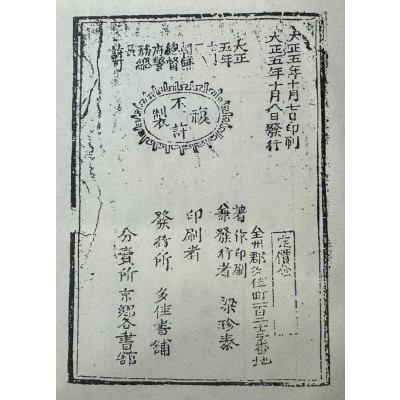 大正五年十月七日印刷
大正五年十月八日發行
大正
五年
朝鮮
總督
府警
務總
長
不許複製
定價金
全州郡多佳町一百二十三番地
著作印刷
兼發行者 梁珍泰
印刷者
發行所 多佳書舖
分賣所 京鄉各書舘